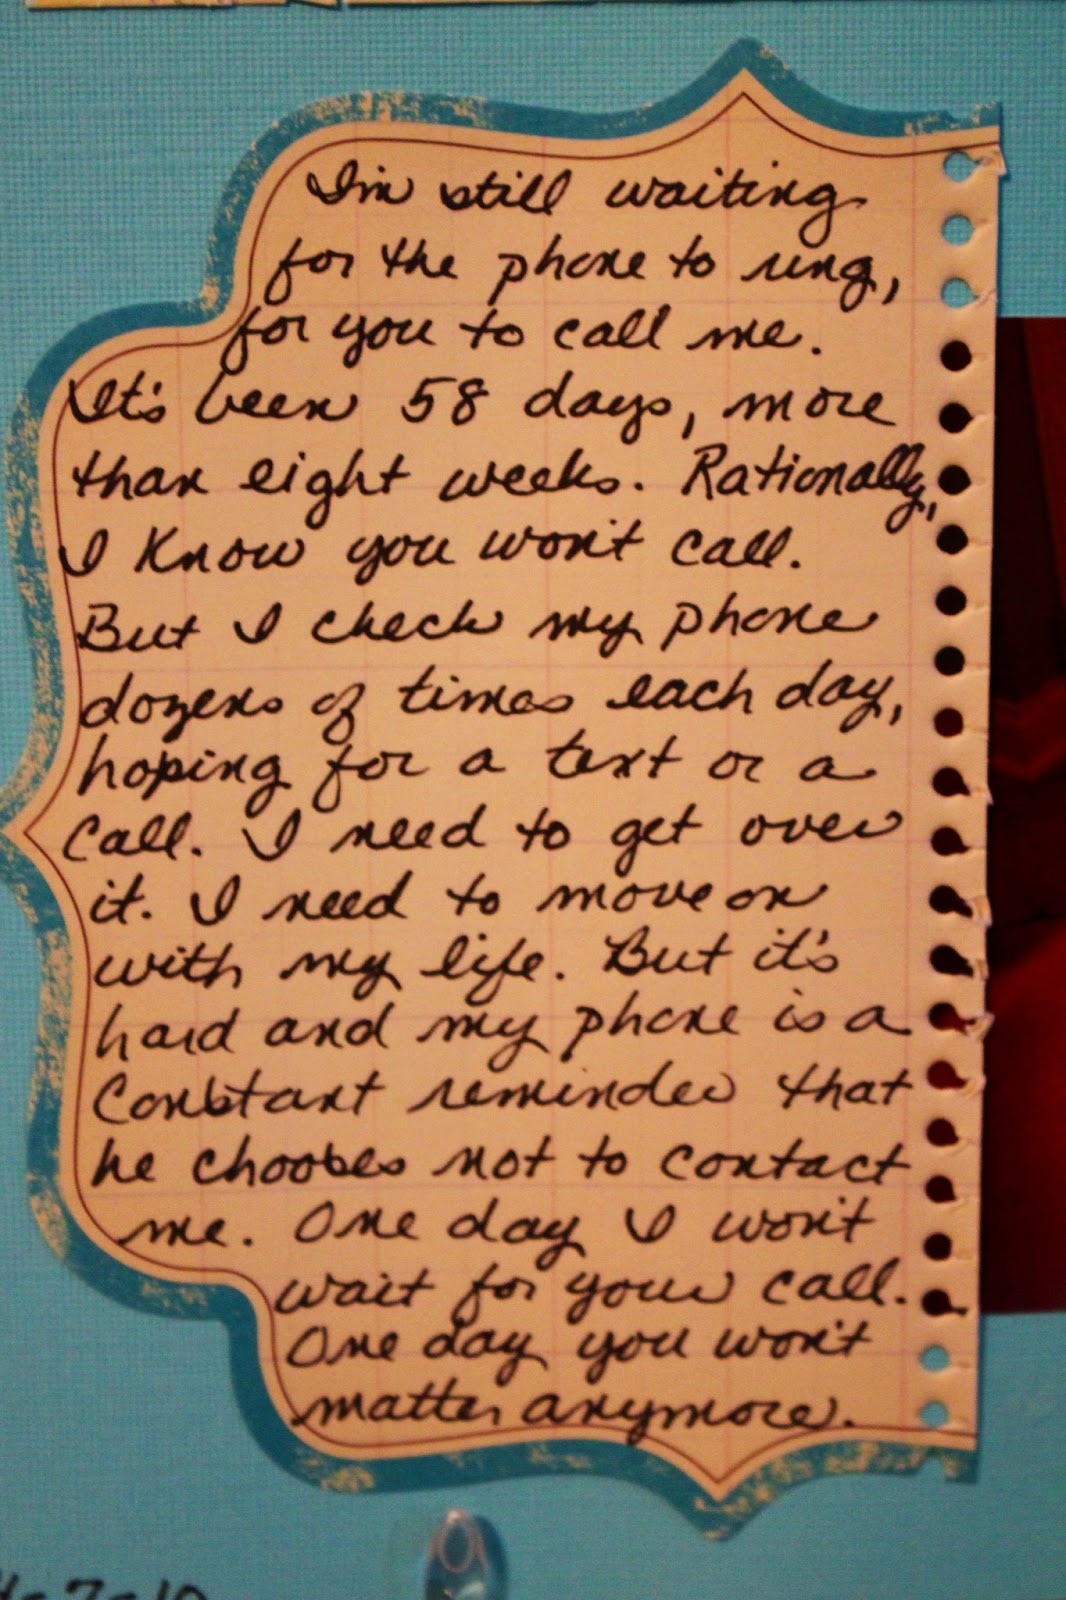 I'm still waiting
for the phone to ring,
for you to call me.
It's been 58 days, more
than eight weeks. Rationally,
I know you won't call.
But I check my phone
dozens of times each day,
hoping for a text or a
call. I need to get over
it. I need to move on
with my life. But it's
hard and my phone is a
constant reminder that
he chooses not to contact
me. One day I won't
wait for your call.
One day you won't
matter anymore.